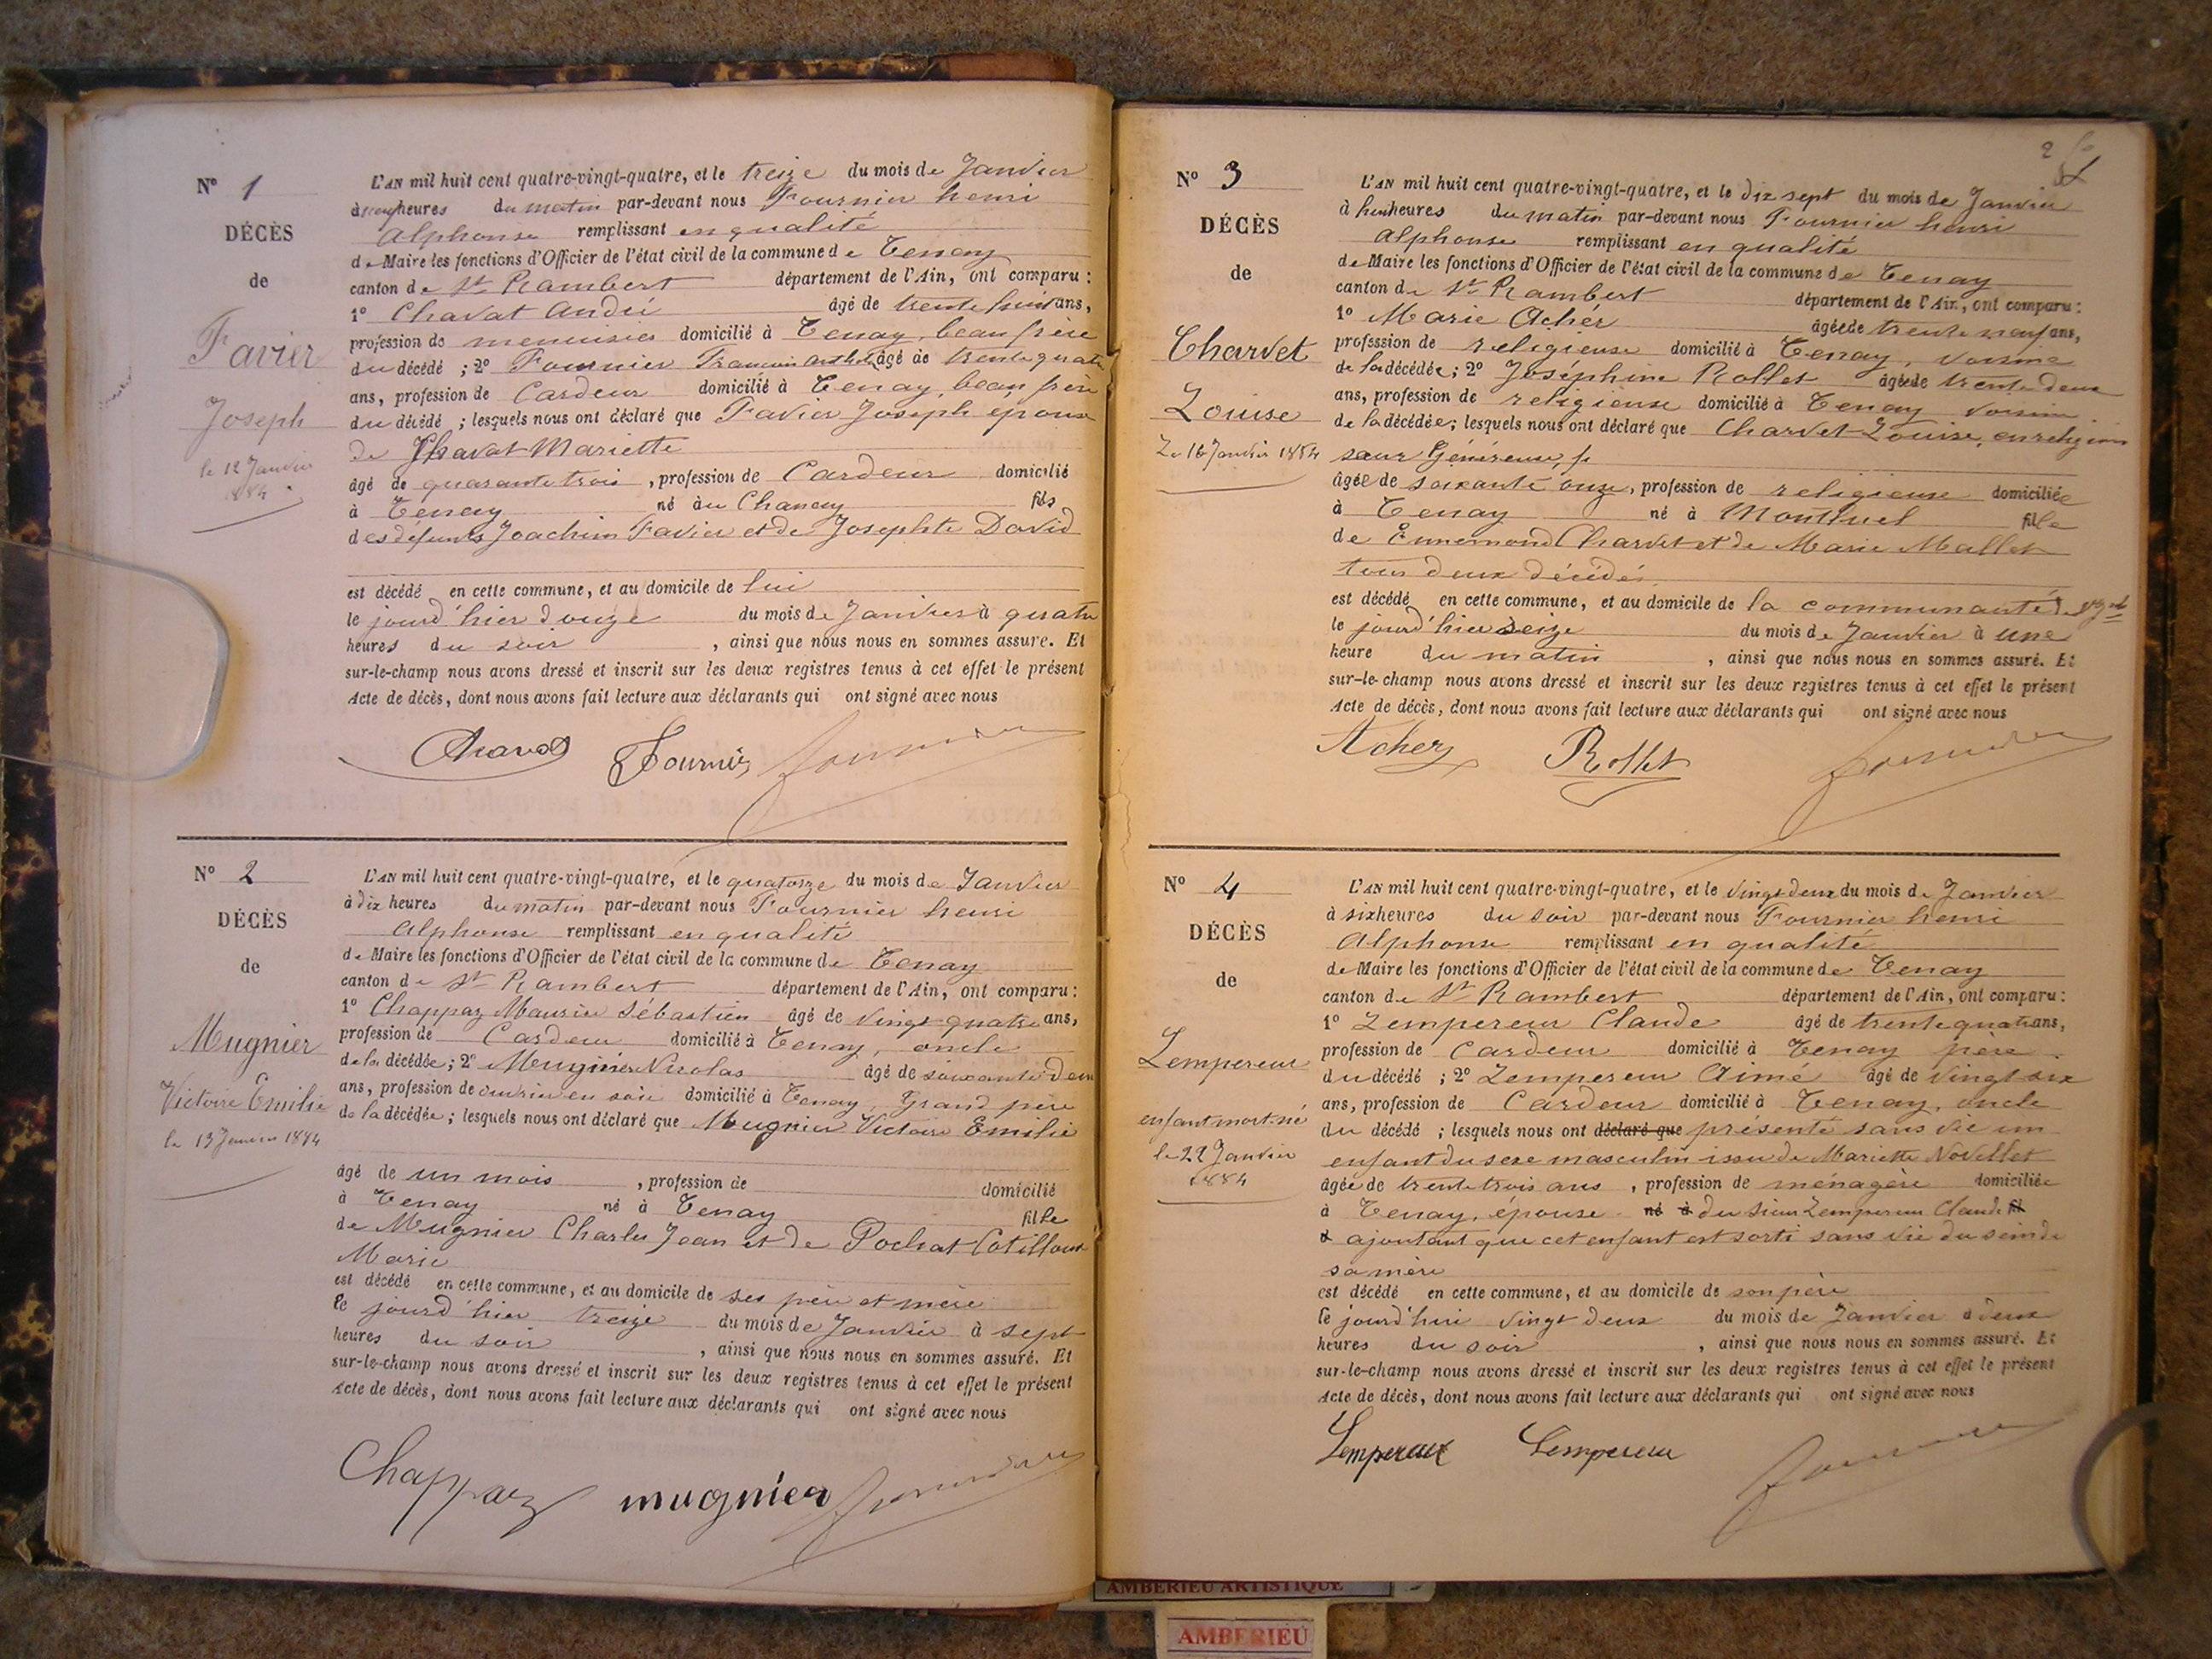 Nº 1
DÉCÈS
de
Favier
Joseph
le 12 Janvier
1884
L'AN mil huit cent quatre-vingt-quatre, et le treize du mois de Janvier
à neuf heures du matin par-devant nous Fournier henri
Alphonse remplissant en qualité
de Maire les fonctions d'Officier de l'état civil de la commune de Tenay
canton de St Rambert département de l'Ain, ont comparu :
1º Chavat André âgé de trente huit ans,
profession de menuisier domicilié à Tenay, beau frère
du décédé ; 2º Fournier âgé de trente quatre
ans, profession de Cardeur domicilié à Tenay, beau frère
du décédé ; lesquels nous ont déclaré que Favier Joseph époux
de Chavat Mariette
âgé de quarante trois , profession de Cardeur domicilié
à Tenay né au Chanay fils
des défunts Joachim Favier et de Josephte David
est décédé en cette commune, et au domicile de lui
le jourd'hier douze du mois de Janvier à quatre
heures du soir , ainsi que nous nous en sommes assuré. Et
sur-le-champ nous avons dressé et inscrit sur les deux registres tenus à cet effet le présent
Acte de décès, dont nous avons fait lecture aux déclarants qui ont signé avec nous
Chavat Fournier Fournier
Nº 2
DÉCÈS
de
Mugnier
Victoire Emilie
le 13 Janvier 1884
L'AN mil huit cent quatre-vingt-quatre, et le quatorze du mois de Janvier
à dix heures du matin par-devant nous Fournier henri
Alphonse remplissant en qualité
de Maire les fonctions d'Officier de l'état civil de la commune de Tenay
canton de St Rambert département de l'Ain, ont comparu :
1º Chappaz Maurice Sébastien âgé de vingt quatre ans,
profession de Cardeur domicilié à Tenay, oncle
de la décédée ; 2º Mugnier Nicolas âgé de soixante deux
ans, profession de ouvrier en soie domicilié à Tenay Grand père
de la décédée ; lesquels nous ont déclaré que Mugnier Victoire Emilie
âgé de un mois , profession de domicilié
à Tenay né à Tenay fille
de Mugnier Charles Jean et de Pochat Cotilloux
Marie
est décédé en cette commune, et au domicile de ses père et mère
le jourd'hier treize du mois de Janvier à sept
heures du soir , ainsi que nous nous en sommes assuré. Et
sur-le-champ nous avons dressé et inscrit sur les deux registres tenus à cet effet le présent
Acte de décès, dont nous avons fait lecture aux déclarants qui ont signé avec nous
Chappaz mugnier Fournier
2
Nº 3
DÉCÈS
de
Charvet
Louise
Le 16 Janvier 1884
L'AN mil huit cent quatre-vingt-quatre, et le dix sept du mois de Janvier
à huit heures du matin par-devant nous Fournier henri
Alphonse remplissant en qualité
de Maire les fonctions d'Officier de l'état civil de la commune de Tenay
canton de St Rambert département de l'Ain, ont comparu :
1º Marie Acher âgée de trente neuf ans,
profession de religieuse domicilié à Tenay, voisine
de la décédée ; 2º Joséphine Rollet âgée de trente deux
ans, profession de religieuse domicilié à Tenay voisine
de la décédée ; lesquels nous ont déclaré que Charvet Louise, en religion
sœur Généreuse,
âgée de soixante onze, profession de religieuse domiciliée
à Tenay né à Montluel fille
de Ennemond Charvet et de Marie Mallet
tous deux décédés
est décédé en cette commune, et au domicile de la communauté
le jourd'hier seize du mois de Janvier à une
heure du matin , ainsi que nous nous en sommes assuré. Et
sur-le-champ nous avons dressé et inscrit sur les deux registres tenus à cet effet le présent
Acte de décès, dont nous avons fait lecture aux déclarants qui ont signé avec nous
Acher Rollet Fournier
Nº 4
DÉCÈS
de
Lempereur
enfant mort-né
le 22 Janvier
1884
L'AN mil huit cent quatre-vingt-quatre, et le vingt deux du mois de Janvier
à six heures du soir par-devant nous Fournier henri
Alphonse remplissant en qualité
de Maire les fonctions d'Officier de l'état civil de la commune de Tenay
canton de St Rambert département de l'Ain, ont comparu :
1º Lempereur Claude âgé de trente quatre ans,
profession de Cardeur domicilié à Tenay père
du décédé ; 2º Lempereur Aimé âgé de vingt six
ans, profession de Cardeur domicilié à Tenay, oncle
du décédé ; lesquels nous ont déclaré que présenté sans vie un
enfant du sexe masculin issu de Mariette Novellet
âgée de trente trois ans , profession de ménagère domiciliée
à Tenay, épouse né à du sieur Lempereur Claude fil
d ajoutant que cet enfant est sorti sans vie du sein de
sa mère
est décédé en cette commune, et au domicile de son père
le jourd'hui vingt deux du mois de Janvier à deux
heures du soir , ainsi que nous nous en sommes assuré. Et
sur-le-champ nous avons dressé et inscrit sur les deux registres tenus à cet effet le présent
Acte de décès, dont nous avons fait lecture aux déclarants qui ont signé avec nous
Lempereur Lempereur Fournier
AMBERIEU ARTISTIQUE
AMBERIEU